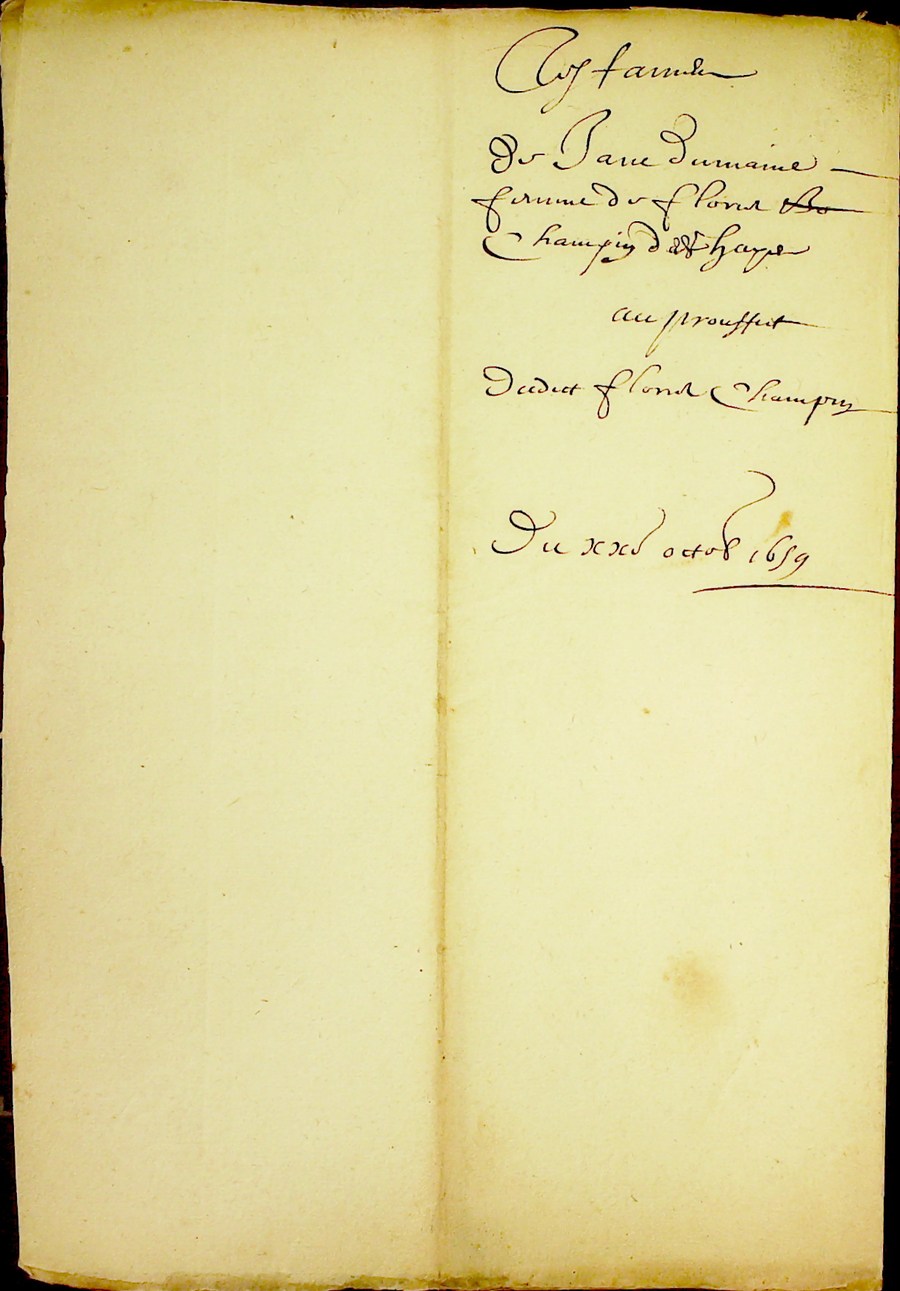 Testament
de Jane Dumaine
femme de floret Bo
Champin de
au prouffit
dudict floret Champin
Du xxe octob 1659